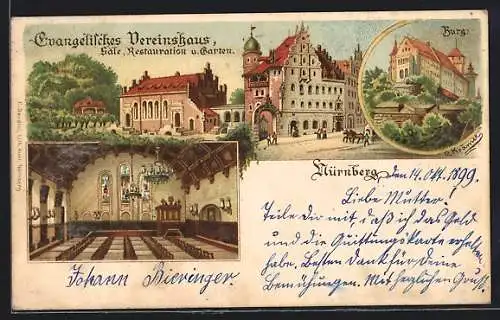 Evangelisches Vereinshaus,
Säle, Restauration u. Garten.
Burg.
Nürnberg, den 14. Okt. 1899.
Liebe Mutter!
Teile Dir mit, daß ich das Geld
und die Quittungskarte erhalten
habe. Besten Dank für Deine
Bemühungen. Mit herzlichen Gruß
Johann Bieringer.